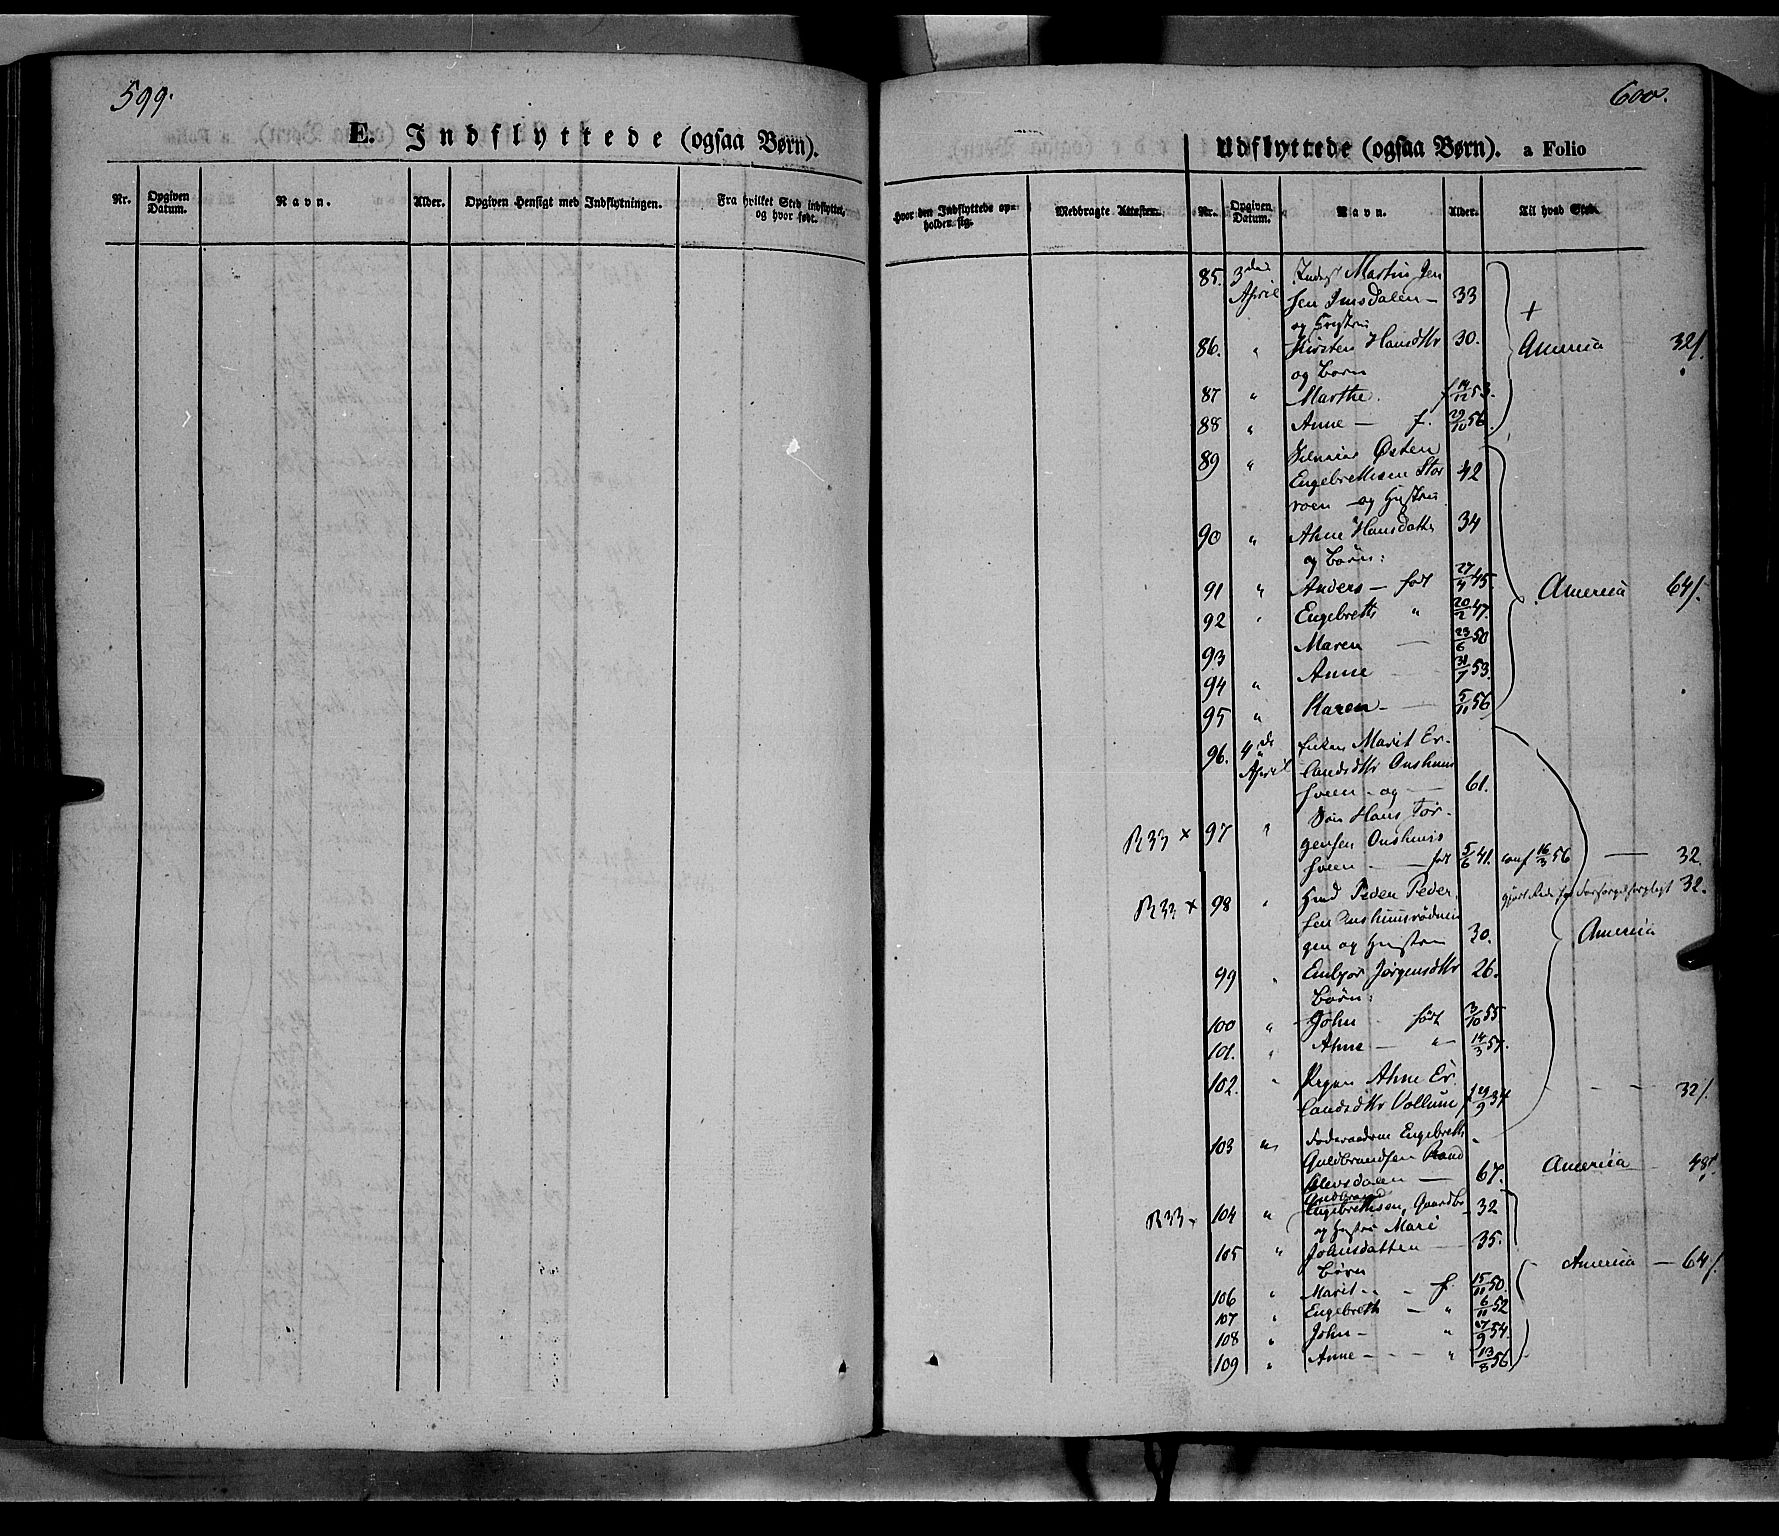 599.
E. Indflyttede (ogsaa Børn).
Nr.
Opgiven Datum.
Navn.
Alder.
Opgiven Hensigt med Indflytningen.
Fra hvilket Sted indflyttet, og hvor født.
600.
Udflyttede (ogsaa Børn). a Folio
Hvor den Indflyttede opholder sig.
Medbragte Attester.
Nr.
Opgiven Datum.
Navn.
Alder.
Til hvad Sted.
85. 3die Inderst Martin Jen
April sen Imsdalen — 33
og Hustru
86. " Kirsten Hansdttr 30. America 32/
og Børn
87 " Marthe. f 14/12 53.
88 " Anne — f. 29/10 56.
89 " Østen
Engebrethsen Stor 42
roen — og Hustru
90 " Ahne Hansdatter 34
og Børn:
91 " Anders — født 27/4 45. America 64/
92 " Engebreth " 20/2 47.
93 Maren — 23/6 50
94 " Anne 31/7 53.
95 " Karen — 5/11 56
96. 4de Enken Marit Er-
April landsdttr Onshuus
sveen — og — 61.
R 33 × 97 " Søn Hans Tor-
gersen Onshuus
sveen — født 5/6 41. conf 16/3 56 — 32
R33 × 98 " Huusmd Peder Peder- 32.
sen Onshuusrødnin
gen og Hustru 30. America
99 " Embjør Jørgensdttr 26.
Børn:
100 " John født 3/10 55
101. " Ahne — " 14/3 57.
102. " Pigen Ahne Er-
landsdttr Vollum f 19/9 34 32/
103 " Føderaadsm Engebreth
Guldbrandsen Rand
Olevsdalen — 67. America — 48/
Gudbrand
R33 × 104 " Engebrethsen, Gaardbr 32
og Hustru Mari
105 " Johnsdatter — 35.
Børn America — 64/
106 " Marit — f. 15/11 50.
107 " Engebreth — " 6/11 52
108 " John — " 17/9 54.
109 " Anne — " 13/8 56